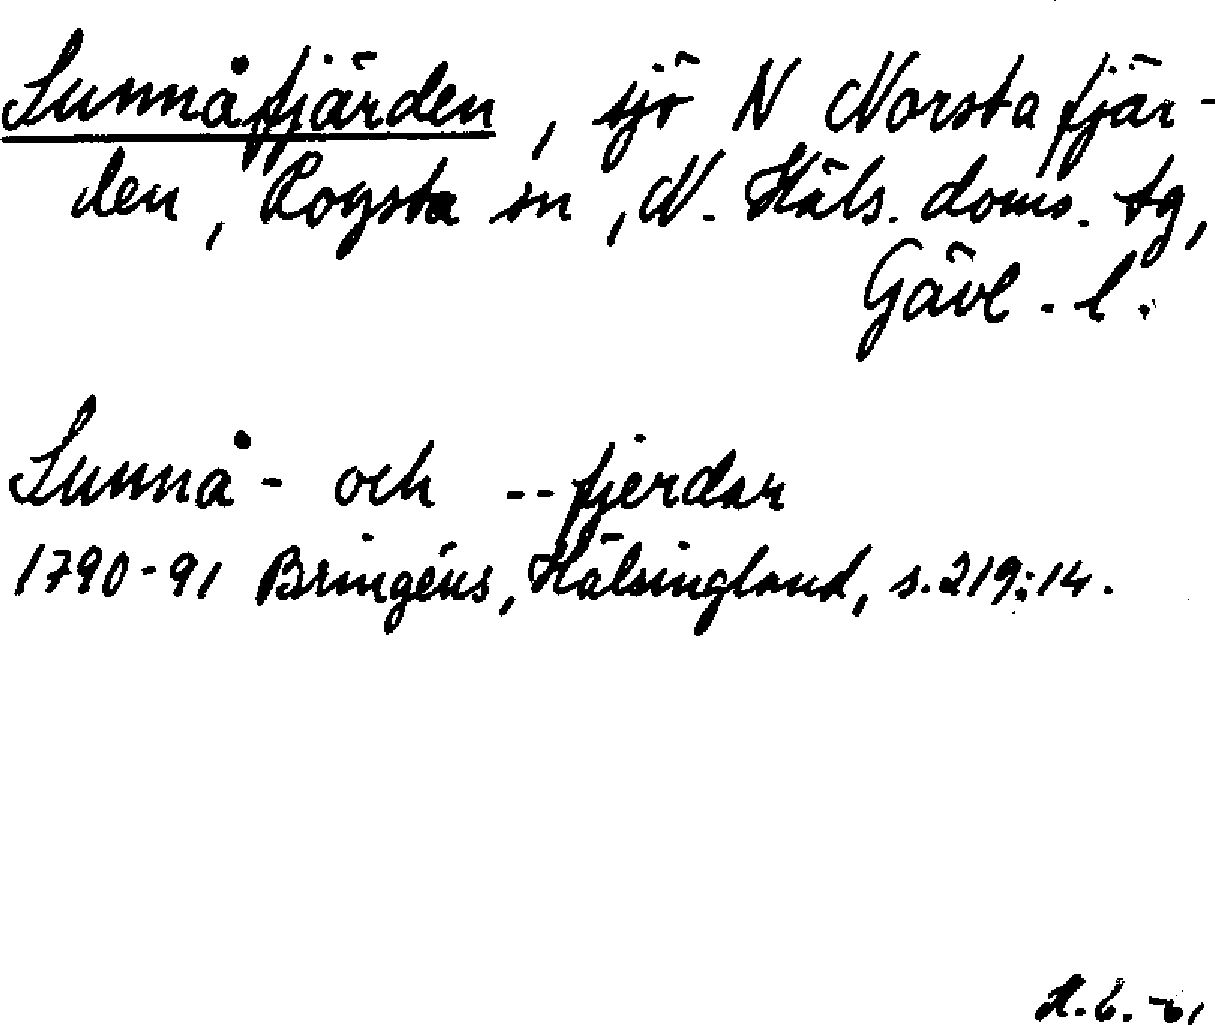 Sunnåfjärden, sjö N Norstafjär-
den, Rogsta sn, N. Häls. doms. tg,
Gävl. l.
Sunnå- och --fjerdar
1790-91 Bringéus, Hälsingland, s. 219:14.